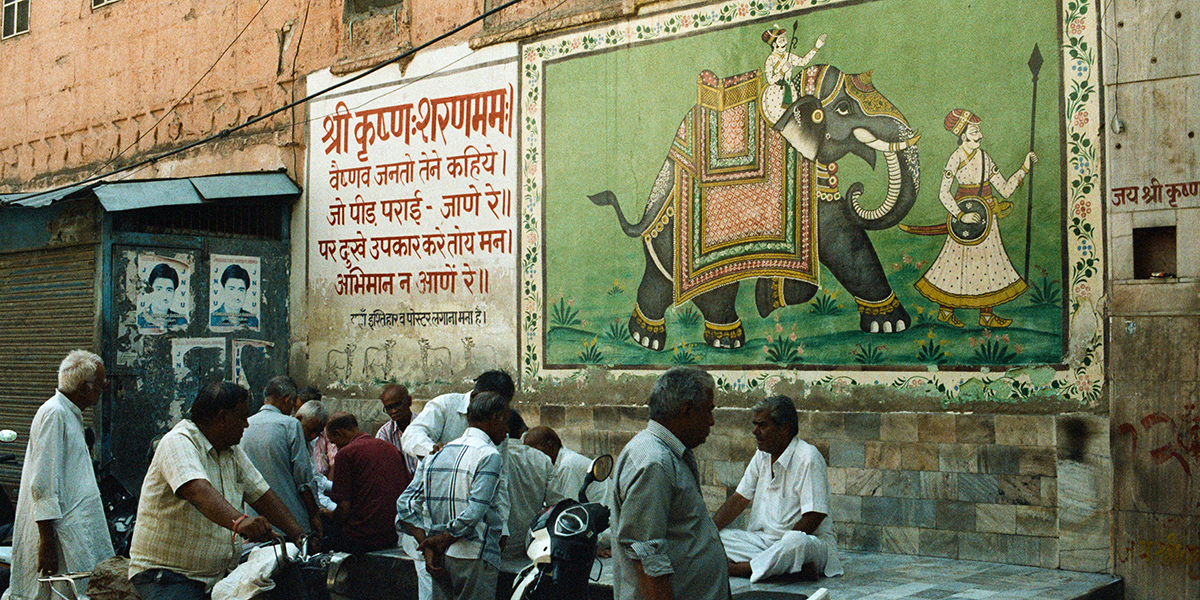 श्री कृष्णः शरणममः।
वैष्णव जनतो तेने कहिये।
जो पीड़ पराई - जाणे रे॥
पर दुःखे उपकार करे तोय मन।
अभिमान न आणें रे॥
इस्तिहार व पोस्टर लगाना मना है।
जय श्री कृष्ण